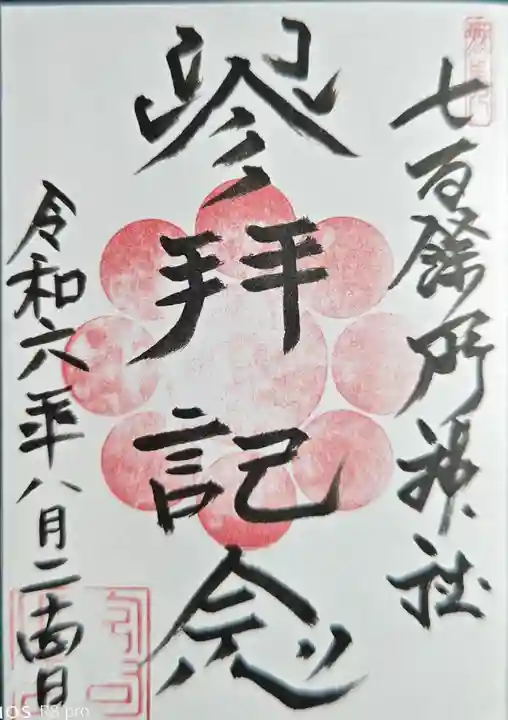 七百餘所神社
參拜記念
令和六年八月二十四日
iOS R8 pro